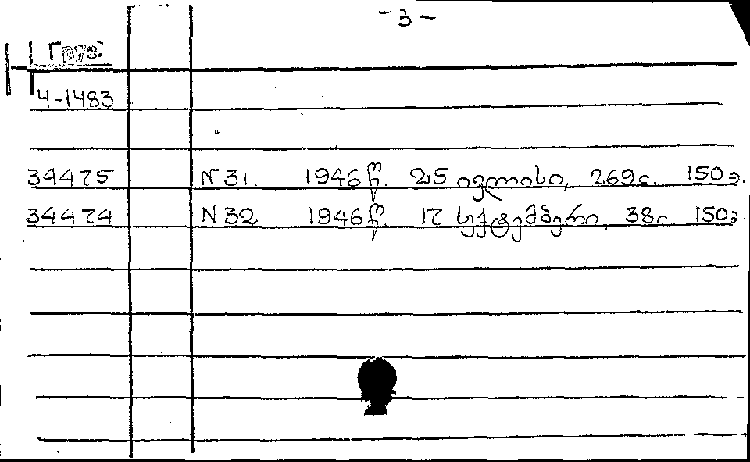 -3-
Груз.
4-1483
34475 N 31. 1946 წ. 25 ივლისი, 269 ც. 150 გ.
34474 N 32 1946 წ. 17 სექტემბერი, 38 ც 150 გ